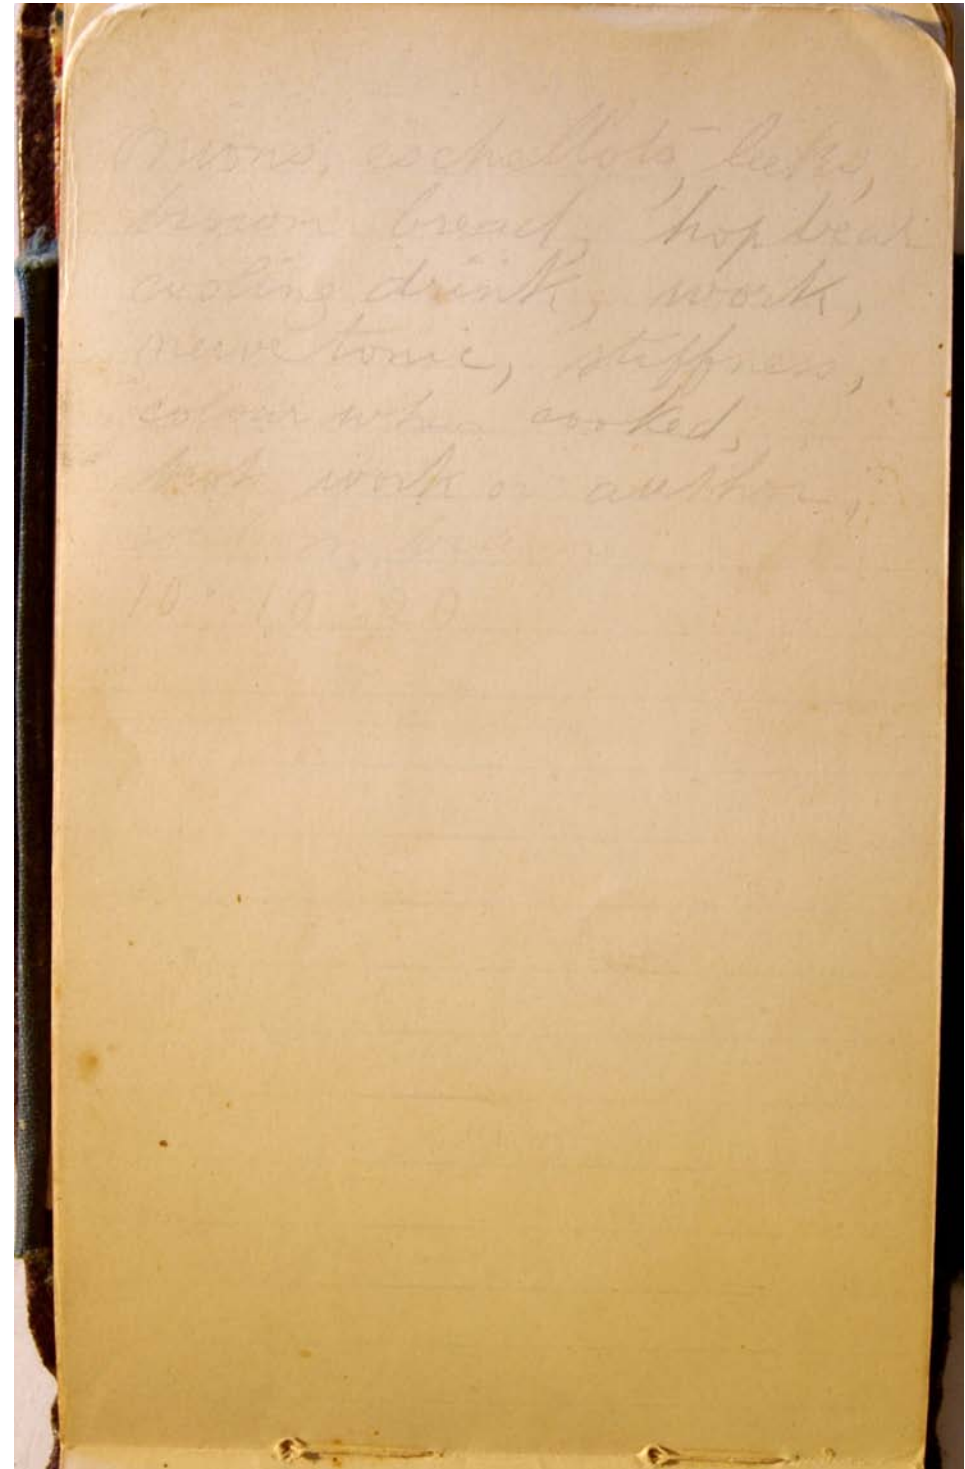 onions, eschellots, leeks,
brown bread, hop bear
cooling drink, work,
nerve tonic, stiffness,
colour when cooked,
work or author,
10 10 20